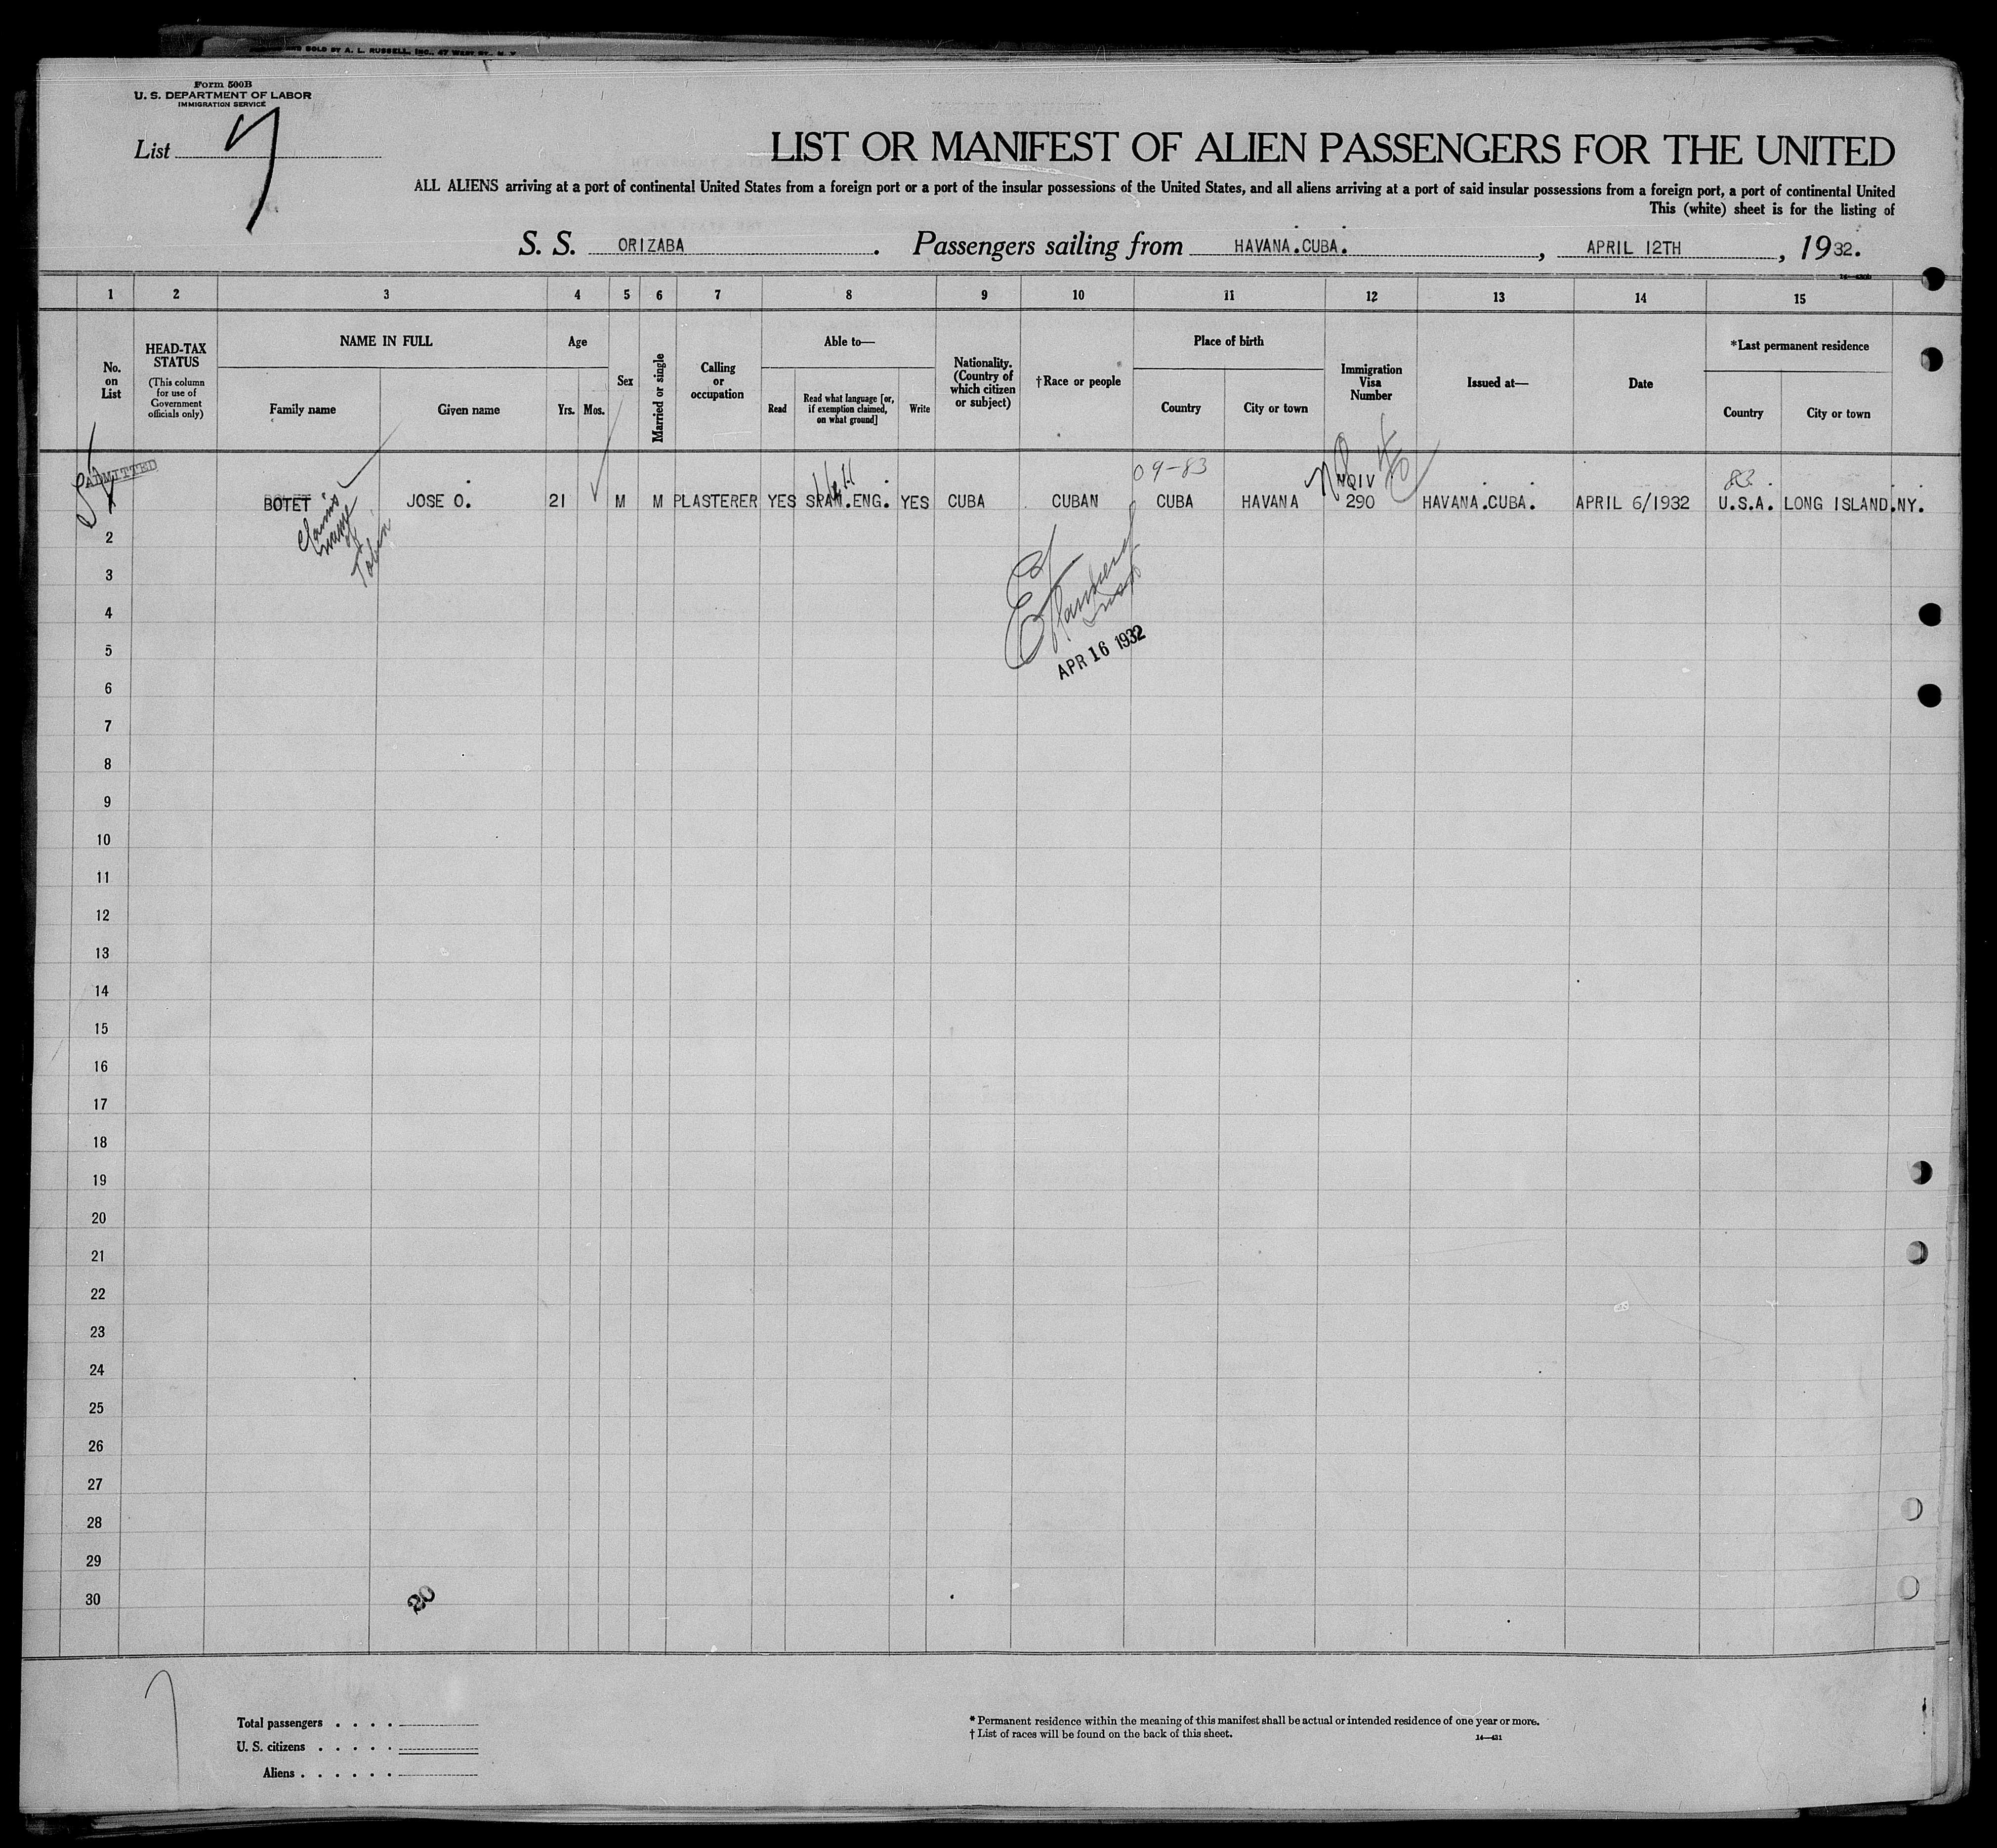 AND SOLD BY A. L. RUSSELL, INC., 47 WEST ST., N. Y.
Form 500B
U. S. DEPARTMENT OF LABOR
IMMIGRATION SERVICE
List 7
LIST OR MANIFEST OF ALIEN PASSENGERS FOR THE UNITED
ALL ALIENS arriving at a port of continental United States from a foreign port or a port of the insular possessions of the United States, and all aliens arriving at a port of said insular possessions from a foreign port, a port of continental United
This (white) sheet is for the listing of
S. S. ORIZABA. Passengers sailing from HAVANA.CUBA., APRIL 12TH, 1932.
1 2 3 4 5 6 7 8 9 10 11 12 13 14 15
No. on List
HEAD-TAX STATUS
(This column for use of Government officials only)
NAME IN FULL
Family name
Given name
Age
Yrs.
Mos.
Sex
Married or single
Calling or occupation
Able to—
Read
Read what language [or, if exemption claimed, on what ground]
Write
Nationality. (Country of which citizen or subject)
†Race or people
Place of birth
Country
City or town
Immigration Visa Number
Issued at—
Date
*Last permanent residence
Country
City or town
ADMITTED
09-83
NQIV
83
BOTET JOSE O. 21 M M PLASTERER YES SPAN.ENG. YES CUBA CUBAN CUBA HAVANA 290 HAVANA.CUBA. APRIL 6/1932 U.S.A. LONG ISLAND.NY.
claims
of
2
3
4
5
APR 16 1932
6
7
8
9
10
11
12
13
14
15
16
17
18
19
20
21
22
23
24
25
26
27
28
29
30
20
Total passengers
U. S. citizens
Aliens
* Permanent residence within the meaning of this manifest shall be actual or intended residence of one year or more.
† List of races will be found on the back of this sheet.
14—431